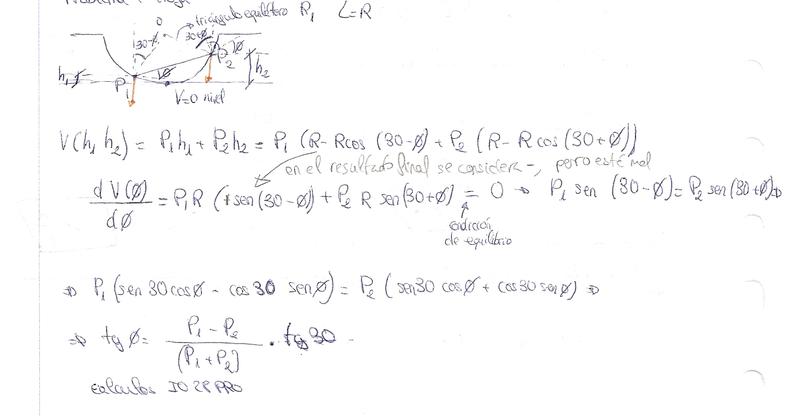 triángulo equilátero P₁ L=R
O
30-ø 30+ø
ø 2
h₁ P₁ ø h₂
V=0 nivel
V(h₁ h₂) = P₁h₁ + P₂h₂ = P₁ (R-Rcos (30-ø) + P₂ (R - R cos (30+ø))
en el resultado final se considera -, pero esté mal
dV(ø)/dø = P₁R (+sen(30-ø)) + P₂ R sen(30+ø) = 0 → P₁ sen (30-ø) = P₂ sen(30+ø) ⇒
condición
de equilibrio
⇒ P₁ (sen 30 cosø - cos 30 senø) = P₂ (sen30 cosø + cos 30 senø) ⇒
⇒ tg ø = P₁ - P₂ / (P₁ + P₂) · tg 30
calculos